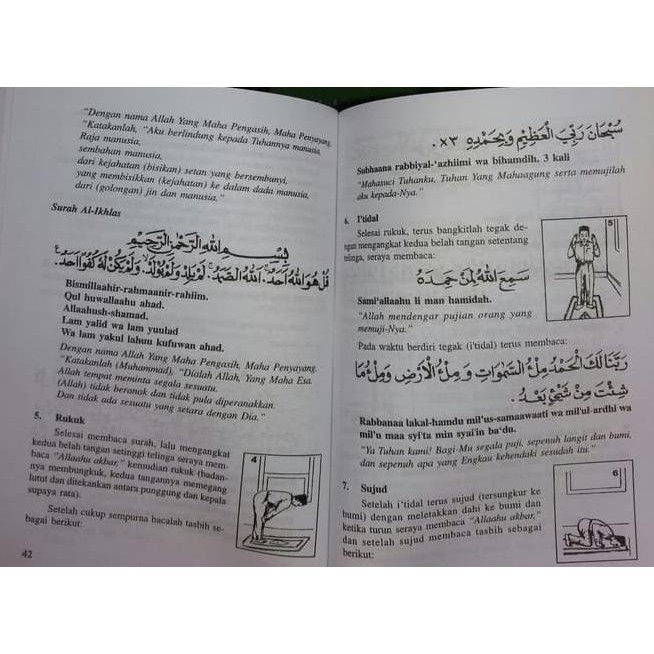 "Dengan nama Allah Yang Maha Pengasih, Maha Penyayang.
"Katakanlah, "Aku berlindung kepada Tuhannya manusia,
Raja manusia,
sembahan manusia,
dari kejahatan (bisikan) setan yang bersembunyi,
yang membisikkan (kejahatan) ke dalam dada manusia,
dari (golongan) jin dan manusia."
Surah Al-Ikhlas
بِسْمِ اللهِ الرَّحْمٰنِ الرَّحِيْمِ
قُلْ هُوَ اللهُ اَحَدٌ. اَللهُ الصَّمَدُ. لَمْ يَلِدْ وَلَمْ يُوْلَدْ. وَلَمْ يَكُنْ لَهُ كُفُوًا اَحَدٌ.
Bismillaahir-rahmaanir-rahiim.
Qul huwallaahu ahad.
Allaahush-shamad.
Lam yalid wa lam yuulad
Wa lam yakul lahuu kufuwan ahad.
Dengan nama Allah Yang Maha Pengasih, Maha Penyayang.
"Katakanlah (Muhammad), "Dialah Allah, Yang Maha Esa.
Allah tempat meminta segala sesuatu.
(Allah) tidak beranak dan tidak pula diperanakkan.
Dan tidak ada sesuatu yang setara dengan Dia."
5. Rukuk
Selesai membaca surah, lalu mengangkat
kedua belah tangan setinggi telinga seraya mem-
baca "Allaahu akbar," kemudian rukuk (badan-
nya membungkuk, kedua tangannya memegang
lutut dan ditekankan antara punggung dan kepala
supaya rata).
Setelah cukup sempurna bacalah tasbih se-
bagai berikut:
4
42
سُبْحَانَ رَبِّيَ الْعَظِيْمِ وَبِحَمْدِهِ ×٣.
Subhaana rabbiyal-'azhiimi wa bihamdih. 3 kali
"Mahasuci Tuhanku, Tuhan Yang Mahaagung serta memujilah
aku kepada-Nya."
6. I'tidal
Selesai rukuk, terus bangkitlah tegak de-
ngan mengangkat kedua belah tangan setentang
telinga, seraya membaca:
سَمِعَ اللهُ لِمَنْ حَمِدَهُ
Sami'allaahu li man hamidah.
"Allah mendengar pujian orang yang
memuji-Nya."
5
Pada waktu berdiri tegak (i'tidal) terus membaca:
رَبَّنَا لَكَ الْحَمْدُ مِلْءُ السَّمٰوَاتِ وَمِلْءُ الْاَرْضِ وَمِلْءُ مَا
شِئْتَ مِنْ شَيْئٍ بَعْدُ.
Rabbanaa lakal-hamdu mil'us-samaawaati wa mil'ul-ardhi wa
mil'u maa syi'ta min syai'in ba'du.
"Ya Tuhan kami! Bagi-Mu segala puji, sepenuh langit dan bumi,
dan sepenuh apa yang Engkau kehendaki sesudah itu."
7. Sujud
Setelah i'tidal terus sujud (tersungkur ke
bumi) dengan meletakkan dahi ke bumi dan
ketika turun seraya membaca "Allaahu akbar,"
dan setelah sujud membaca tasbih sebagai
berikut:
6